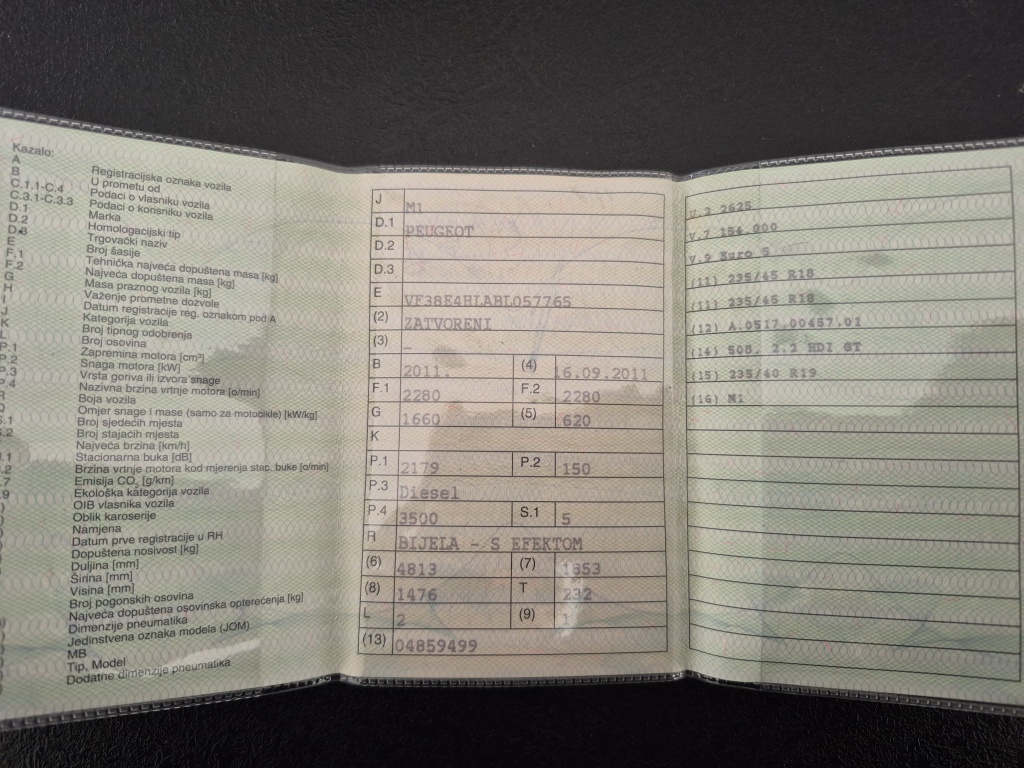 Kazalo:
A Registracijska oznaka vozila
B U prometu od
C.1.1-C.4 Podaci o vlasniku vozila
C.3.1-C.3.3 Podaci o korisniku vozila
D.1 Marka
D.2 Homologacijski tip
D.3 Trgovački naziv
E Broj šasije
F.1 Tehnička najveća dopuštena masa [kg]
F.2 Najveća dopuštena masa [kg]
G Masa praznog vozila [kg]
H Važenje prometne dozvole
I Datum registracije reg. oznakom pod A
J Kategorija vozila
K Broj tipnog odobrenja
L Broj osovina
P.1 Zapremina motora [cm³]
P.2 Snaga motora [kW]
P.3 Vrsta goriva ili izvora snage
P.4 Nazivna brzina vrtnje motora [o/min]
R Boja vozila
Omjer snage i mase (samo za motocikle) [kW/kg]
S.1 Broj sjedećih mjesta
S.2 Broj stajaćih mjesta
Najveća brzina [km/h]
.1 Stacionarna buka [dB]
.2 Brzina vrtnje motora kod mjerenja stac. buke [o/min]
.7 Emisija CO₂ [g/km]
.9 Ekološka kategorija vozila
OIB vlasnika vozila
Oblik karoserije
Namjena
Datum prve registracije u RH
Dopuštena nosivost [kg]
Duljina [mm]
Širina [mm]
Visina [mm]
Broj pogonskih osovina
Najveća dopuštena osovinska opterećenja [kg]
Dimenzije pneumatika
Jedinstvena oznaka modela (JOM)
MB
Tip, Model
Dodatne dimenzije pneumatika
J M1
D.1 PEUGEOT
D.2
D.3
E VF38E4HLABL057765
(2) ZATVORENI
(3) –
B 2011. (4) 16.09.2011
F.1 2280 F.2 2280
G 1660 (5) 620
K
P.1 2179 P.2 150
P.3 Diesel
P.4 3500 S.1 5
R BIJELA - S EFEKTOM
(6) 4813 (7) 1853
(8) 1476 T 232
L 2 (9) 1
(13) 04859499
U.2 2625
V.7 154.000
V.9 Euro 5
(11) 235/45 R18
(11) 235/45 R18
(12) A.0517.00457.01
(14) 508, 2.2 HDI GT
(15) 235/40 R19
(16) M1